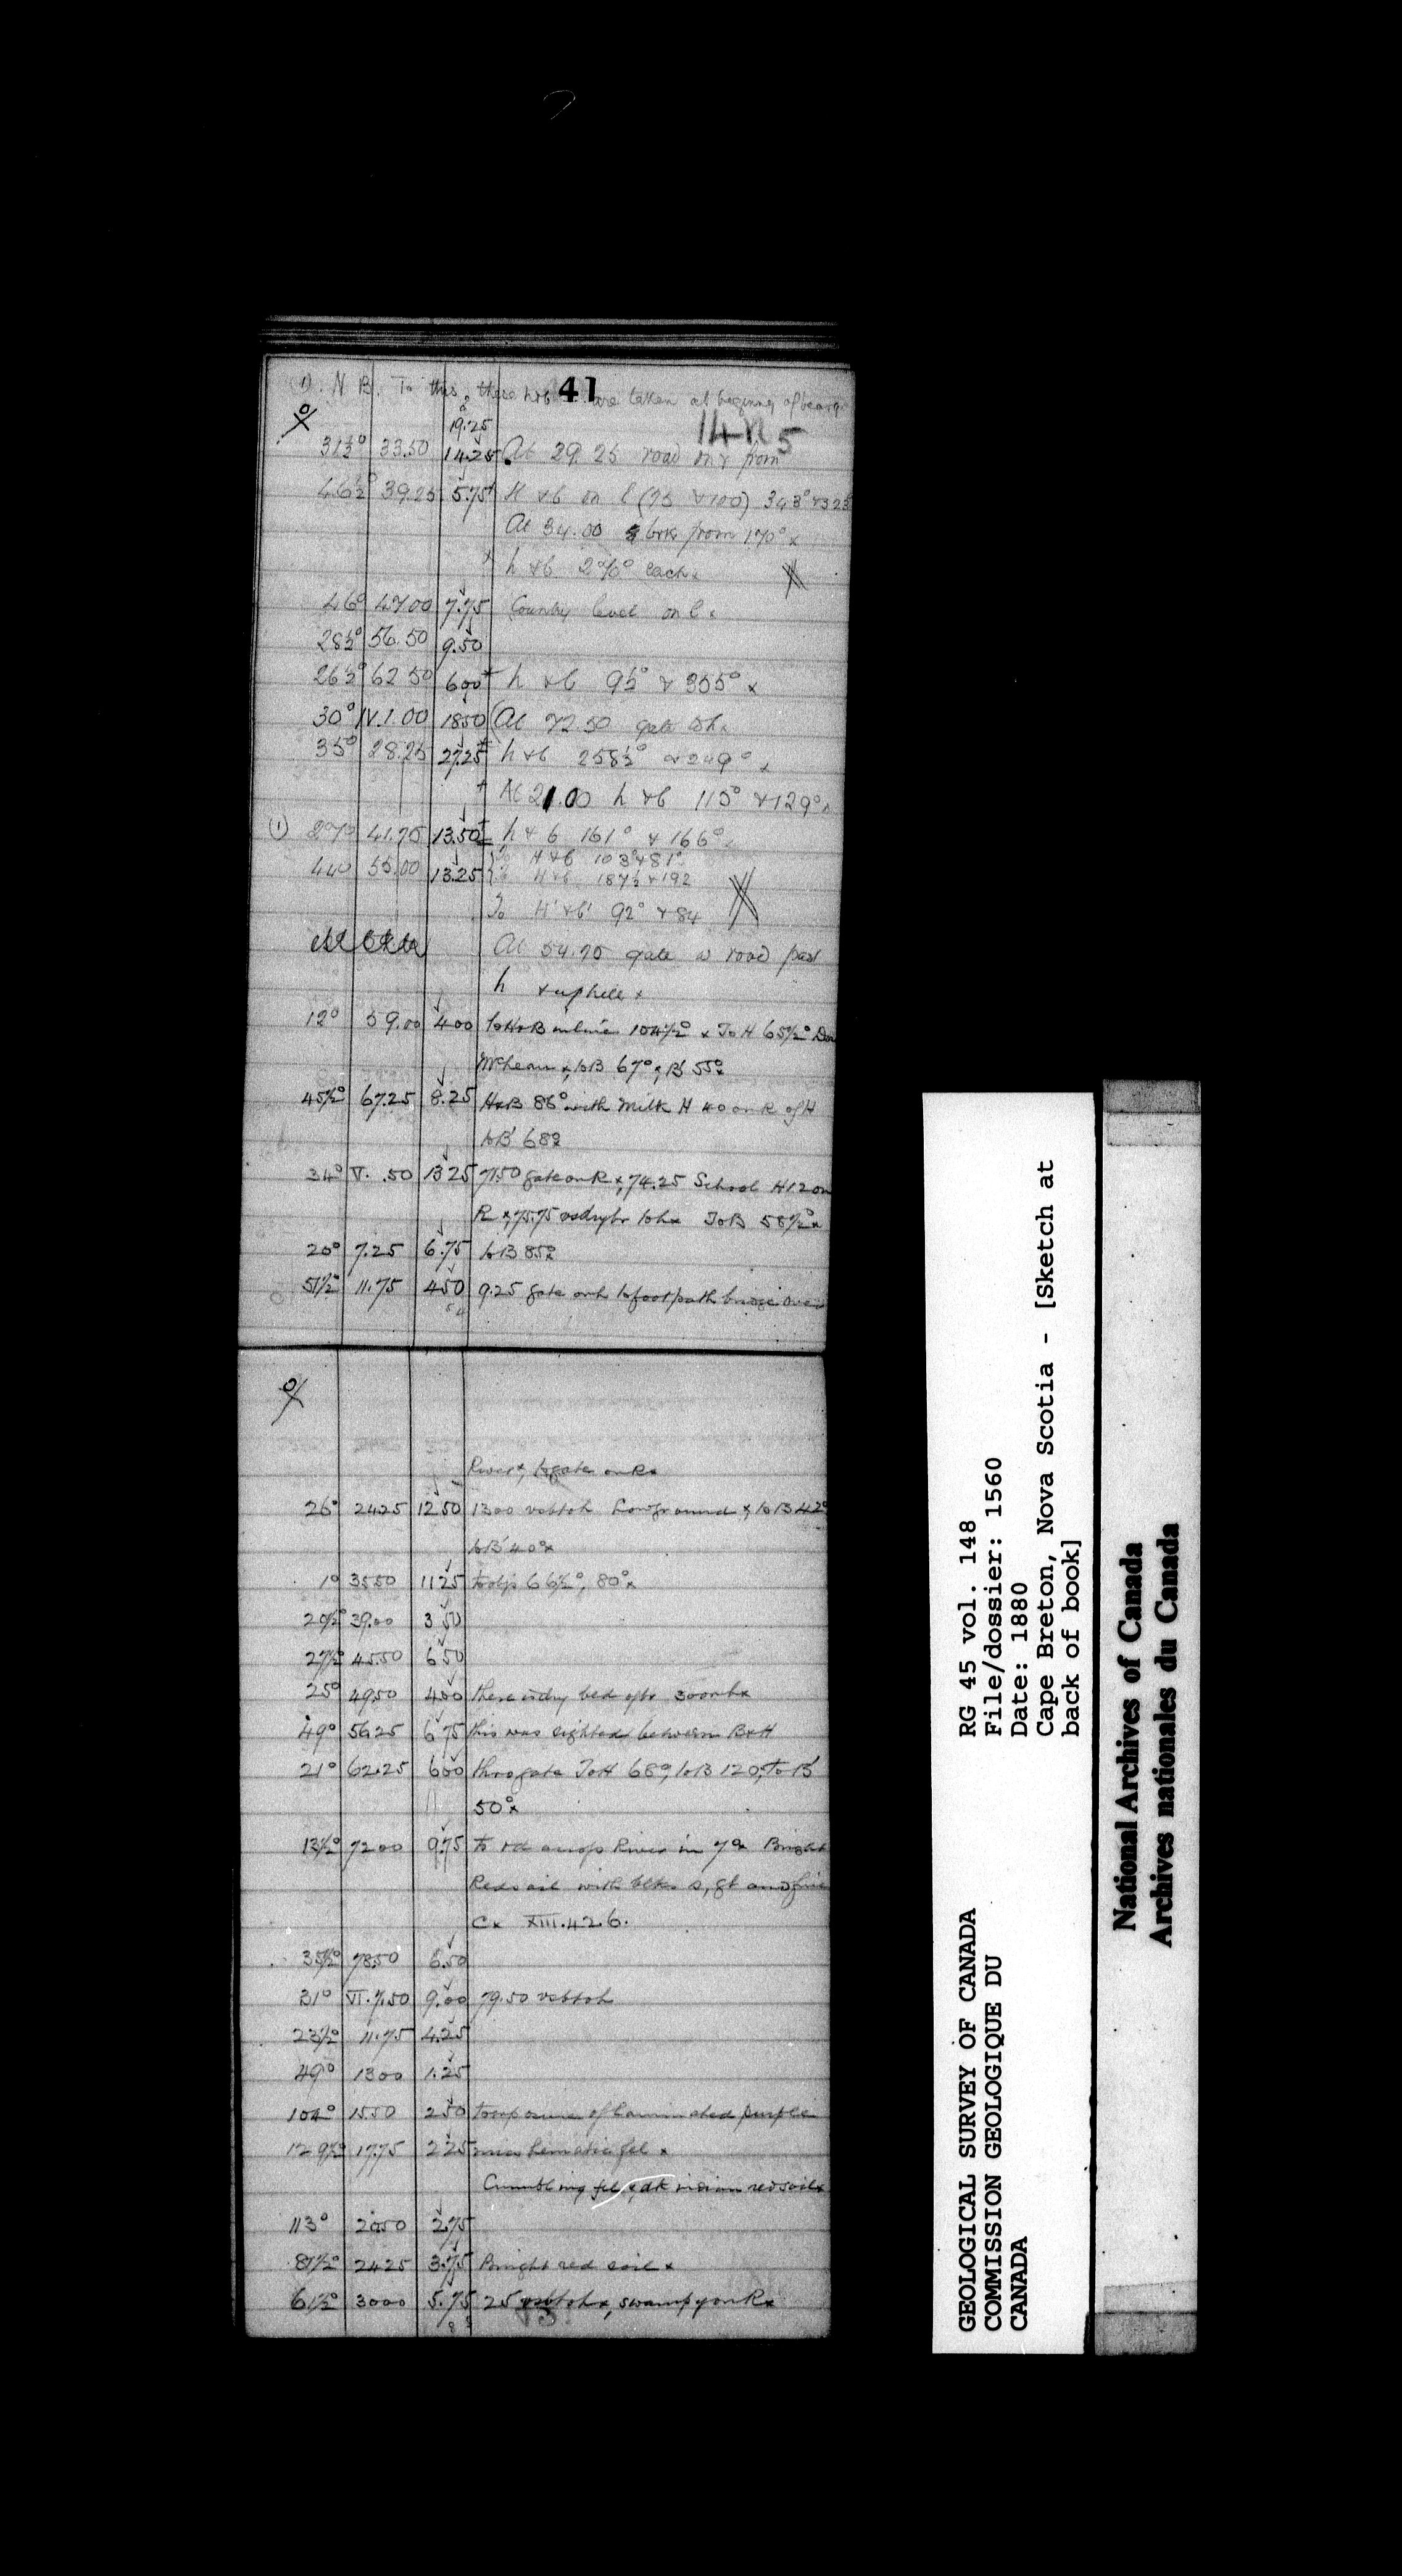 41
(1) N B. To this, these h+b are taken at beginning of bearg
19.25
14 N 5
31½° 33.50 14.25 At 29.25 road on r from
46½° 39.25 5.75 H +b on l (75 +100) 343° +323
At 34.00 brk from 170° x
h +b 270° each x
46° 47.00 7.75 Country level on l x
28½° 56.50 9.50
26½° 62.50 6.00 h +b 95° + 355° x
30° IV.1.00 18.50 (At 72.50 gate x
35° 28.25 27.25 h +b 258½° + 249° x
At 21.00 h +b 115° +129° x
(1) 27° 41.75 13.50 h + b 161° + 166°
To H+b 103° +81°
44° 55.00 13.25 To H+b 187½ +192
To H' +b' 92° +84
At 54.75 gate & road past
h + uphill x
12° 59.00 4.00 to H+B in line 104½° x To H 65½° Don
McLean x, to B 67°, B' 55° x
45½° 67.25 8.25 H+B 86° with Milk H 40 on R of H
to B' 68°
34° V. .50 13.25 71.50 gate on R x, 74.25 School H 12 on
R x, 75.75 To B 58½° x
20° 7.25 6.75 to B 85° x
51½° 11.75 4.50 9.25 gate on h to footpath bridge over
River x, to gate on R x
26° 24.25 12.50 13.00 Low ground x, to B 42°
to B' 40° x
1° 35.50 11.25 66½°, 80° x
20½° 39.00 3.50
27½° 45.50 6.50
25° 49.50 4.00 there is dry bed of br 300 on h x
49° 56.25 6.75 this was sighted between B+H
21° 62.25 6.00 thro gate To H 68°, to B 120°, to B'
50° x
13½° 72.00 9.75 To rd across River in 7° x Bright
Red soil with blks s, gt and fine
C x XIII.42.6.
35½° 78.50 6.50
31° VI.7.50 9.00 79.50
23½° 11.75 4.25
49° 13.00 1.25
104° 15.50 2.50 To exposure of laminated purple
129½° 17.75 2.25 hematitic fel x
Crumbling fel x, dk red soil x
113° 20.50 2.75
81½° 24.25 3.75 Bright red soil x
61½° 30.00 5.75 25 swampy on R x
GEOLOGICAL SURVEY OF CANADA
COMMISSION GEOLOGIQUE DU
CANADA
RG 45 vol. 148
File/dossier: 1560
Date: 1880
Cape Breton, Nova Scotia - [Sketch at
back of book]
National Archives of Canada
Archives nationales du Canada